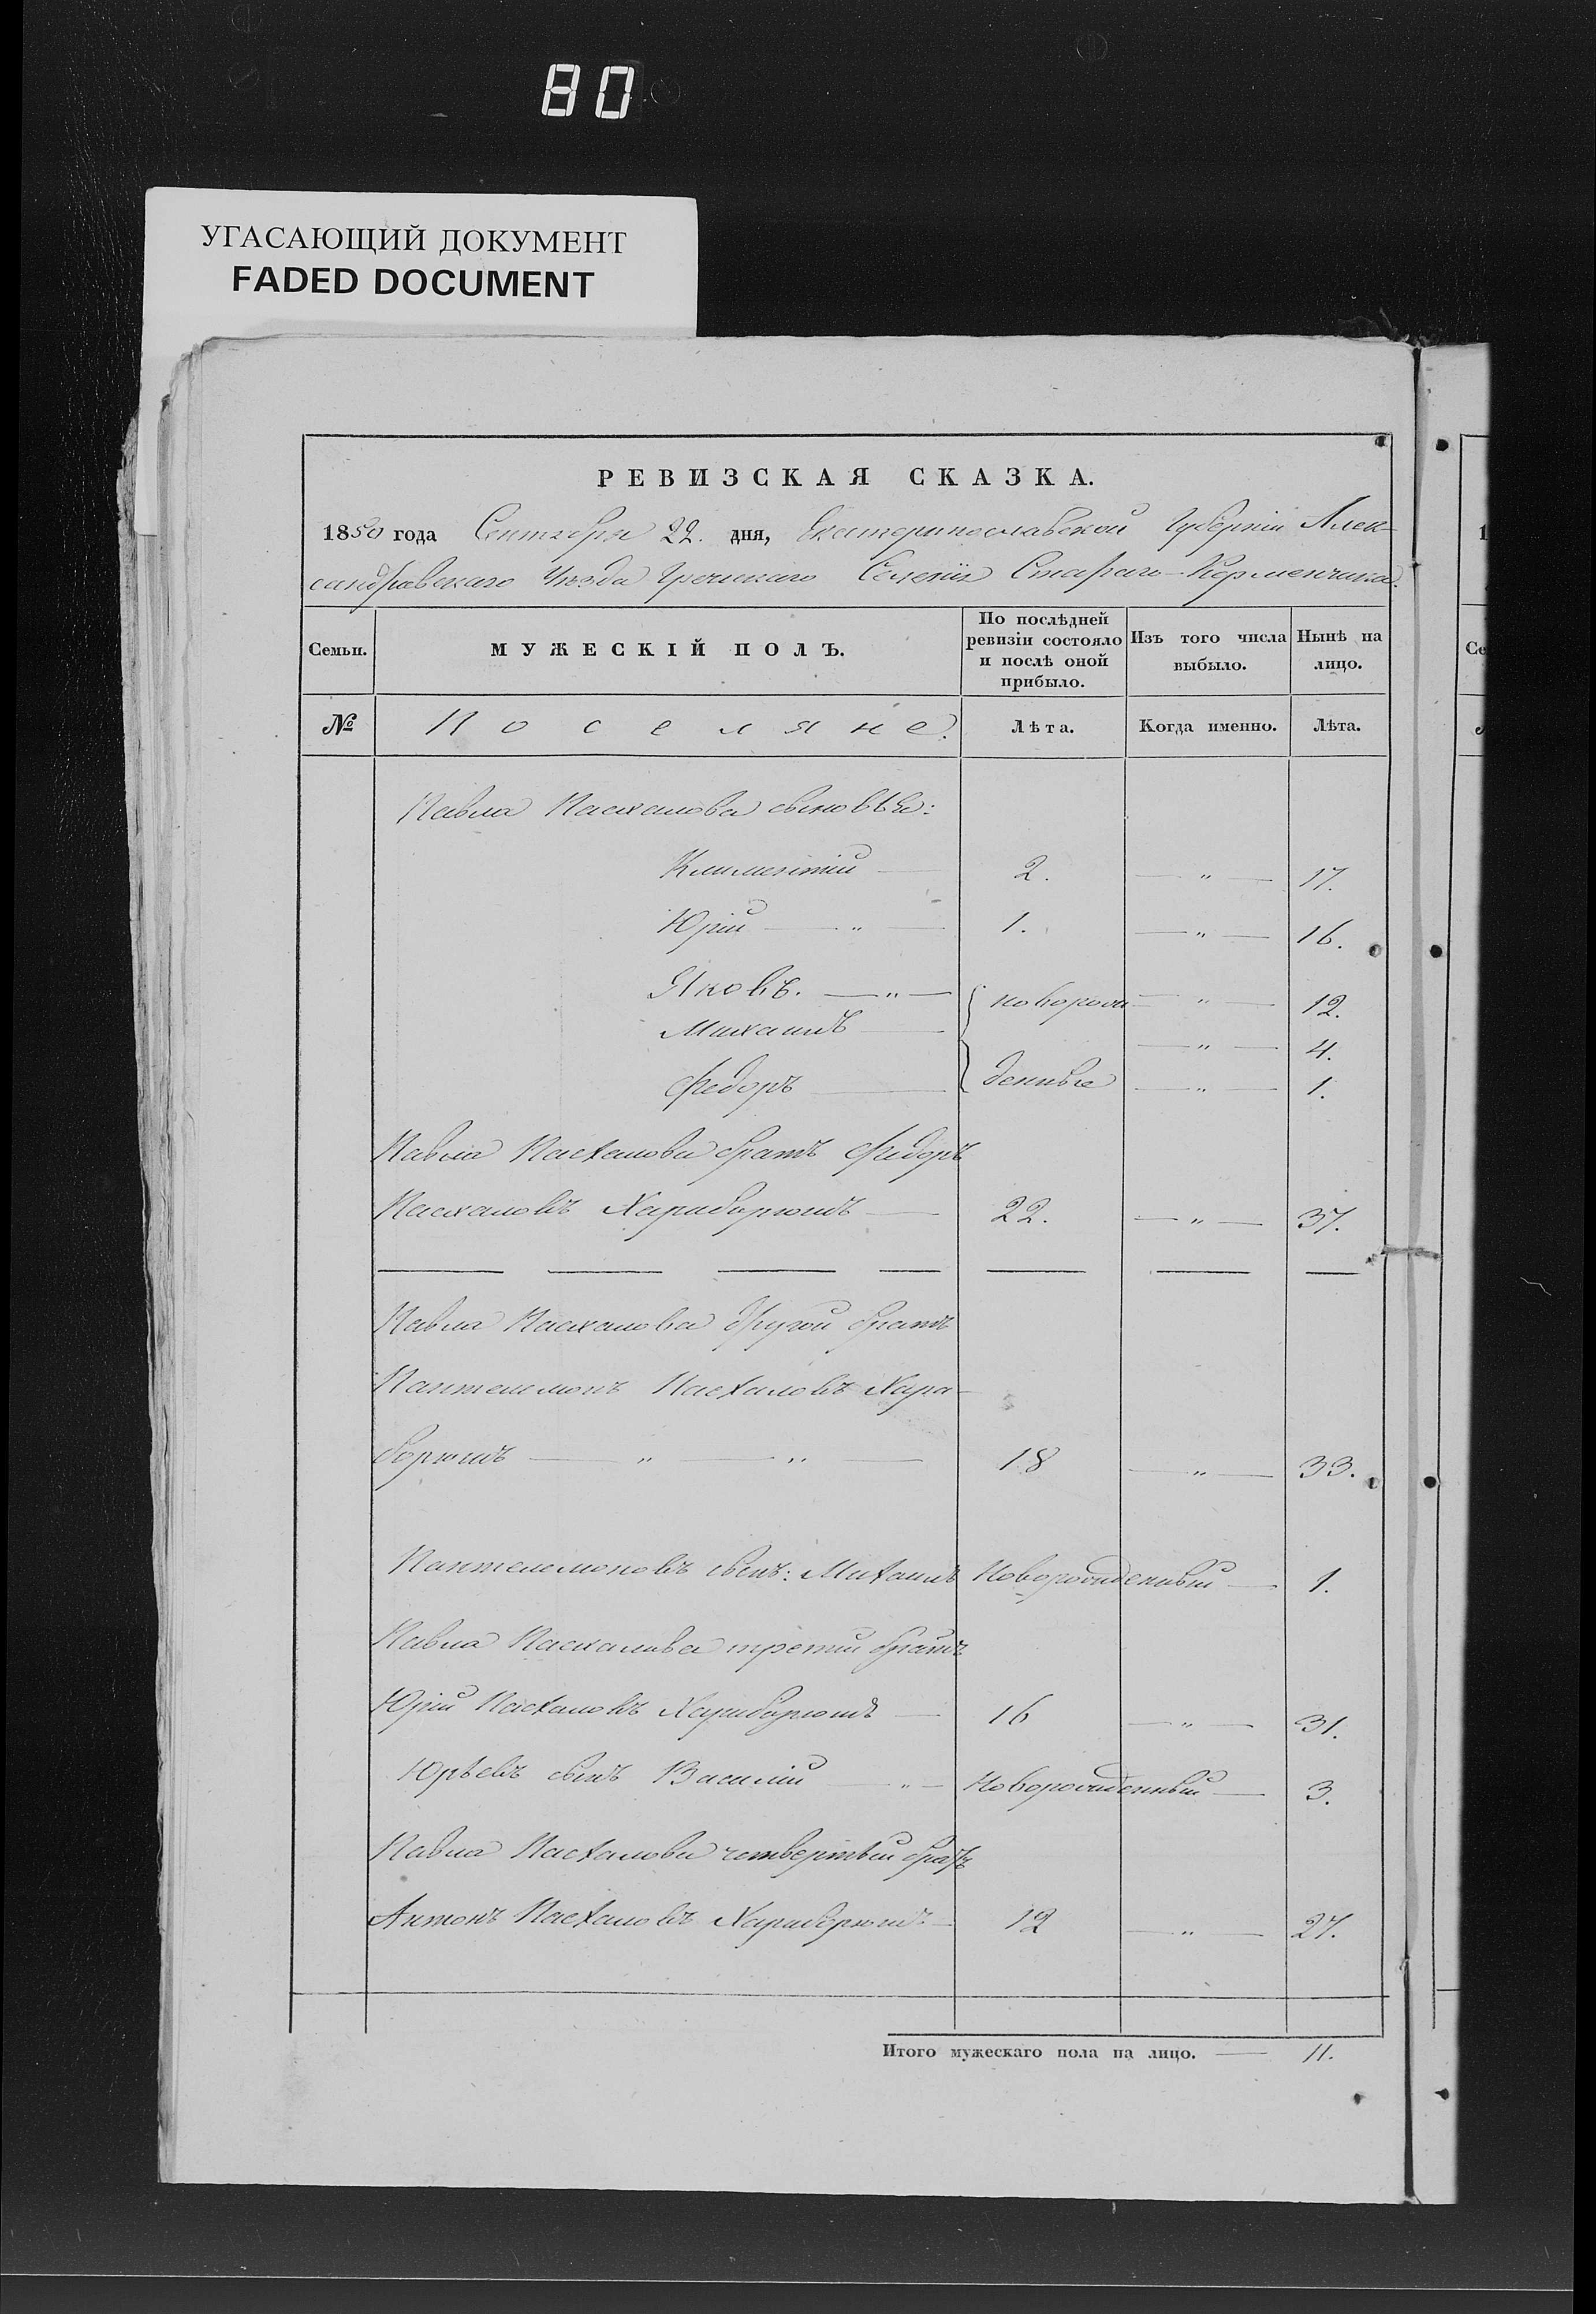 80
УГАСАЮЩИЙ ДОКУМЕНТ
FADED DOCUMENT
РЕВИЗСКАЯ СКАЗКА.
1850 года Сентября 22. дня, Екатеринославской Губерніи Алек-
сандровскаго Уѣзда Греческаго Селенія Стараго-Керменчика.
Семьи. МУЖЕСКІЙ ПОЛЪ. По послѣдней ревизіи состояло и послѣ оной прибыло. Изъ того числа выбыло. Нынѣ на лицо.
№ Поселяне. Лѣта. Когда именно. Лѣта.
Павла Пасхалова сыновья:
Климентій — 2. — " — 17.
Юрій — " — 1. — " — 16.
Яковъ. — " — новорож — " — 12.
Михаилъ — — " — 4.
Федоръ — денные — " — 1.
Павла Пасхалова братъ Федоръ
Пасхаловъ Хараборюшъ — 22. — " — 37.
Павла Пасхалова другой братъ
Пантелемонъ Пасхаловъ Хара-
борюшъ — " — " — 18 — " — 33.
Пантелемоновъ сынъ: Михаилъ Новорожденный — 1.
Павла Пасхалова третий братъ
Юрій Пасхаловъ Хараборюшъ — 16 — " — 31.
Юрьевъ сынъ Василій — " — Новорожденный — 3.
Павла Пасхалова четвертый братъ
Антонъ Пасхаловъ Хараборюшъ — 12 — " — 27.
Итого мужескаго пола на лицо. — 11.